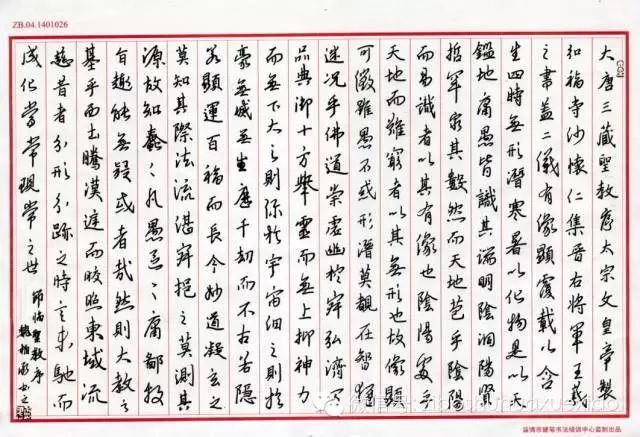 ZB.04.1401026
大唐三藏聖教序太宗文皇帝製
弘福寺沙懷仁集晉右將軍王羲
之書蓋二儀有像顯覆載以含
生四時無形潛寒暑以化物是以天
鑑地庸愚皆識其端明陰洞陽賢
哲罕窮其數然而天地苞乎陰陽
而易識者以其有像也陰陽處乎
天地而難窮者以其無形也故像顯
可徵雖愚不惑形潛莫覩在智猶
迷況乎佛道崇虛幽控寂弘濟万
品典御十方舉靈而無上抑神力
而無下大之則弥於宇宙細之則於
豪無滅無生歷千劫而不古若隱
若顯運百福而長今妙道凝玄之
莫知其際法流湛寂挹之莫測其
源故知蠢々凡愚區々庸鄙投
旨趣能無疑或者哉然則大教之
基乎西土騰漢庭而皎照東域流
慈昔者分形分跡之時言未馳而
成化當常現常之世
節臨聖教序
淄博市硬笔书法培训中心监制出品